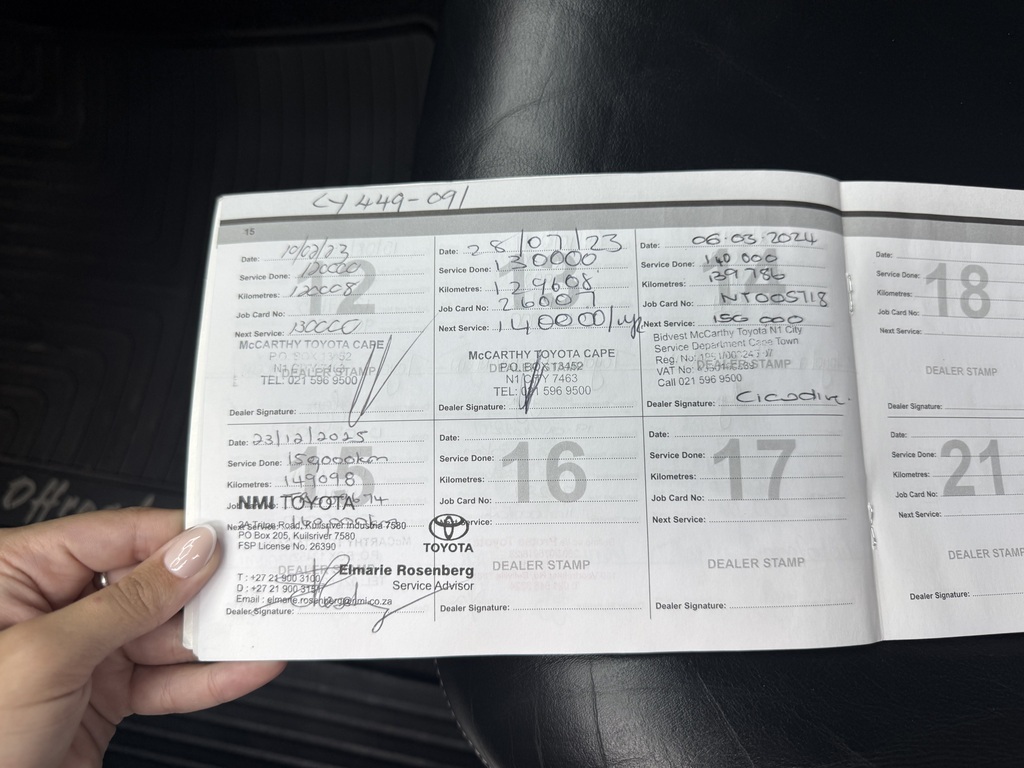 CY 449-091
15
12
Date: 10/02/23
Service Done: 120000
Kilometres: 120008
Job Card No:
Next Service: 130000
McCARTHY TOYOTA CAPE
P.O. BOX
N1
DEALER STAMP
TEL: 021 596 9500
Dealer Signature:
Date: 28/07/23
Service Done: 130000
Kilometres: 129608
Job Card No: 26007
Next Service: 140000/
McCARTHY TOYOTA CAPE
P.O. BOX 13452
N1 CITY 7463
TEL: 021 596 9500
Dealer Signature:
14
Date: 06.03.2024
Service Done: 140 000
Kilometres: 139786
Job Card No: NT005718
Next Service: 150 000
Bidvest McCarthy Toyota N1 City
Service Department Cape Town
Reg. No:
DEALER STAMP
VAT No:
Call 021 596 9500
Dealer Signature:
15
Date: 23/12/2025
Service Done: 150000km
Kilometres: 149098
NMI TOYOTA
Next Service:
2A Triton Road, Kuilsriver Industria 7580
PO Box 205, Kuilsriver 7580
FSP License No. 26390
TOYOTA
DEALER
Elmarie Rosenberg
Service Advisor
T : +27 21 900 3100
D : +27 21 900
Email : elmarie.rosenberg@nmi.co.za
Dealer Signature:
16
Date:
Service Done:
Kilometres:
Job Card No:
Next Service:
DEALER STAMP
Dealer Signature:
17
Date:
Service Done:
Kilometres:
Job Card No:
Next Service:
DEALER STAMP
Dealer Signature:
18
Date:
Service Done:
Kilometres:
Job Card No:
Next Service:
DEALER STAMP
Dealer Signature:
21
Date:
Service Done:
Kilometres:
Job Card No:
Next Service:
DEALER STAMP
Dealer Signature: